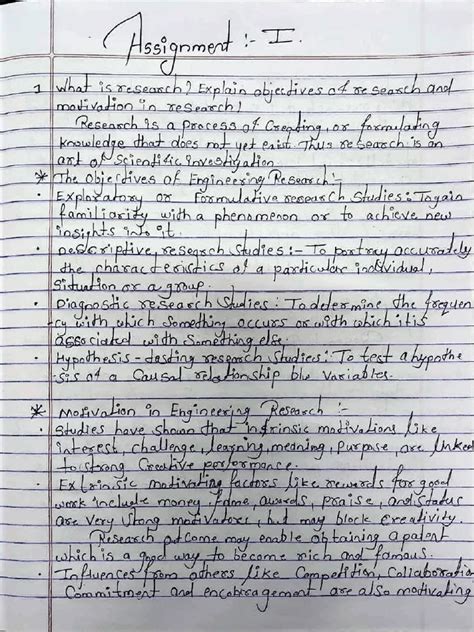 Assignment :- I.
1 What is research? Explain objectives of research and
motivation in research?
Research is a process of Creating, or formulating
knowledge that does not yet exist. Thus research is an
art of Scientific investigation
* The Objectives of Engineering Research:-
• Exploratory or Formulative research Studies: To gain
familiarity with a phenomenon or to achieve new
insights into it.
• Descriptive, research Studies :- To portray accurately
the characteristics of a particular individual,
Situation or a group.
• Diagnostic research Studies : To determine the frequen
cy with which Something occurs or with which it is
associated with Something else.
• Hypothesis - testing research Studies: To test a hypothe
sis of a Causal relationship b/w variables.
* Motivation in Engineering Research :-
• Studies have Shown that intrinsic motivations like
interest, challenge, learning, meaning, Purpose, are linked
to strong Creative performance.
• Extrinsic motivating factors like rewards for good
work include money, fame, awards, praise, and Status
are very strong motivators, but may block Creativity.
Research outcome may enable obtaining a patent
which is a good way to become rich and famous.
• Influences from others like Competition, Collaboration
Commitment and encouragement are also motivating